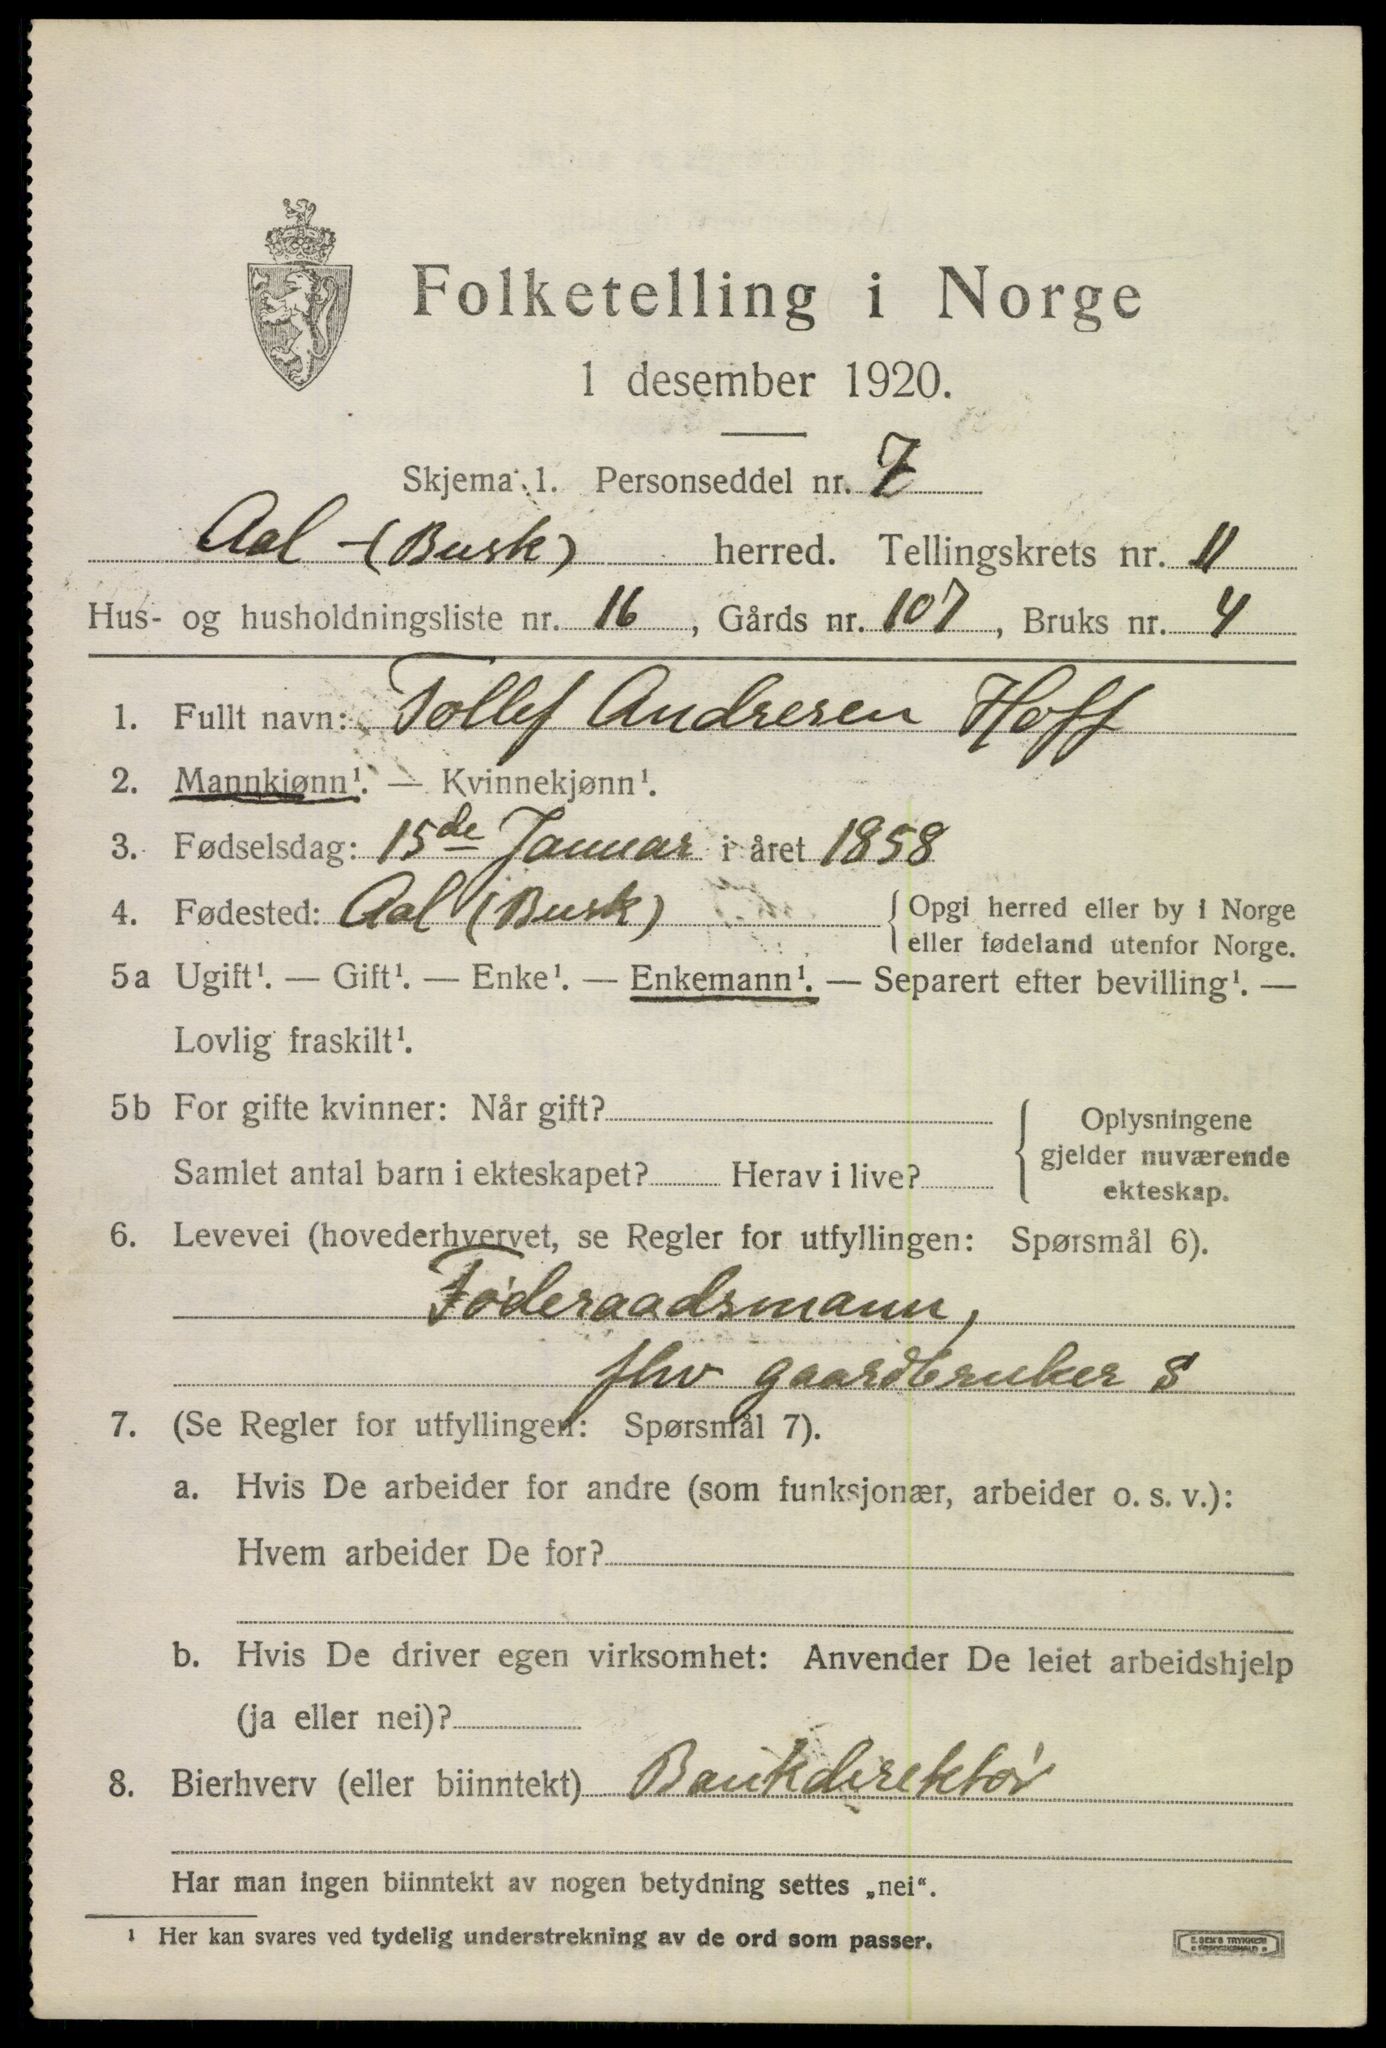 Folketelling i Norge
1 desember 1920.
Skjema 1. Personseddel nr. 7
Aal - (Busk) herred. Tellingskrets nr. 11
Hus- og husholdningsliste nr. 16, Gårds nr. 107, Bruks nr. 4
1. Fullt navn: Tollef Andresen Hoff
2. Mannkjønn¹. — Kvinnekjønn¹.
3. Fødselsdag: 15de Januar i året 1858
4. Fødested: Aal (Busk) { Opgi herred eller by i Norge
eller fødeland utenfor Norge.
5a Ugift¹. — Gift¹. — Enke¹. — Enkemann¹. — Separert efter bevilling¹. —
Lovlig fraskilt¹.
5b For gifte kvinner: Når gift?
Samlet antal barn i ekteskapet? Herav i live?
{ Oplysningene
gjelder nuværende
ekteskap.
6. Levevei (hovederhvervet, se Regler for utfyllingen: Spørsmål 6).
Føderaadsmann,
fhv gaardbruker S
7. (Se Regler for utfyllingen: Spørsmål 7).
a. Hvis De arbeider for andre (som funksjonær, arbeider o. s. v.):
Hvem arbeider De for?
b. Hvis De driver egen virksomhet: Anvender De leiet arbeidshjelp
(ja eller nei)?
8. Bierhverv (eller biinntekt) Bankdirektør
Har man ingen biinntekt av nogen betydning settes „nei“.
¹ Her kan svares ved tydelig understrekning av de ord som passer.